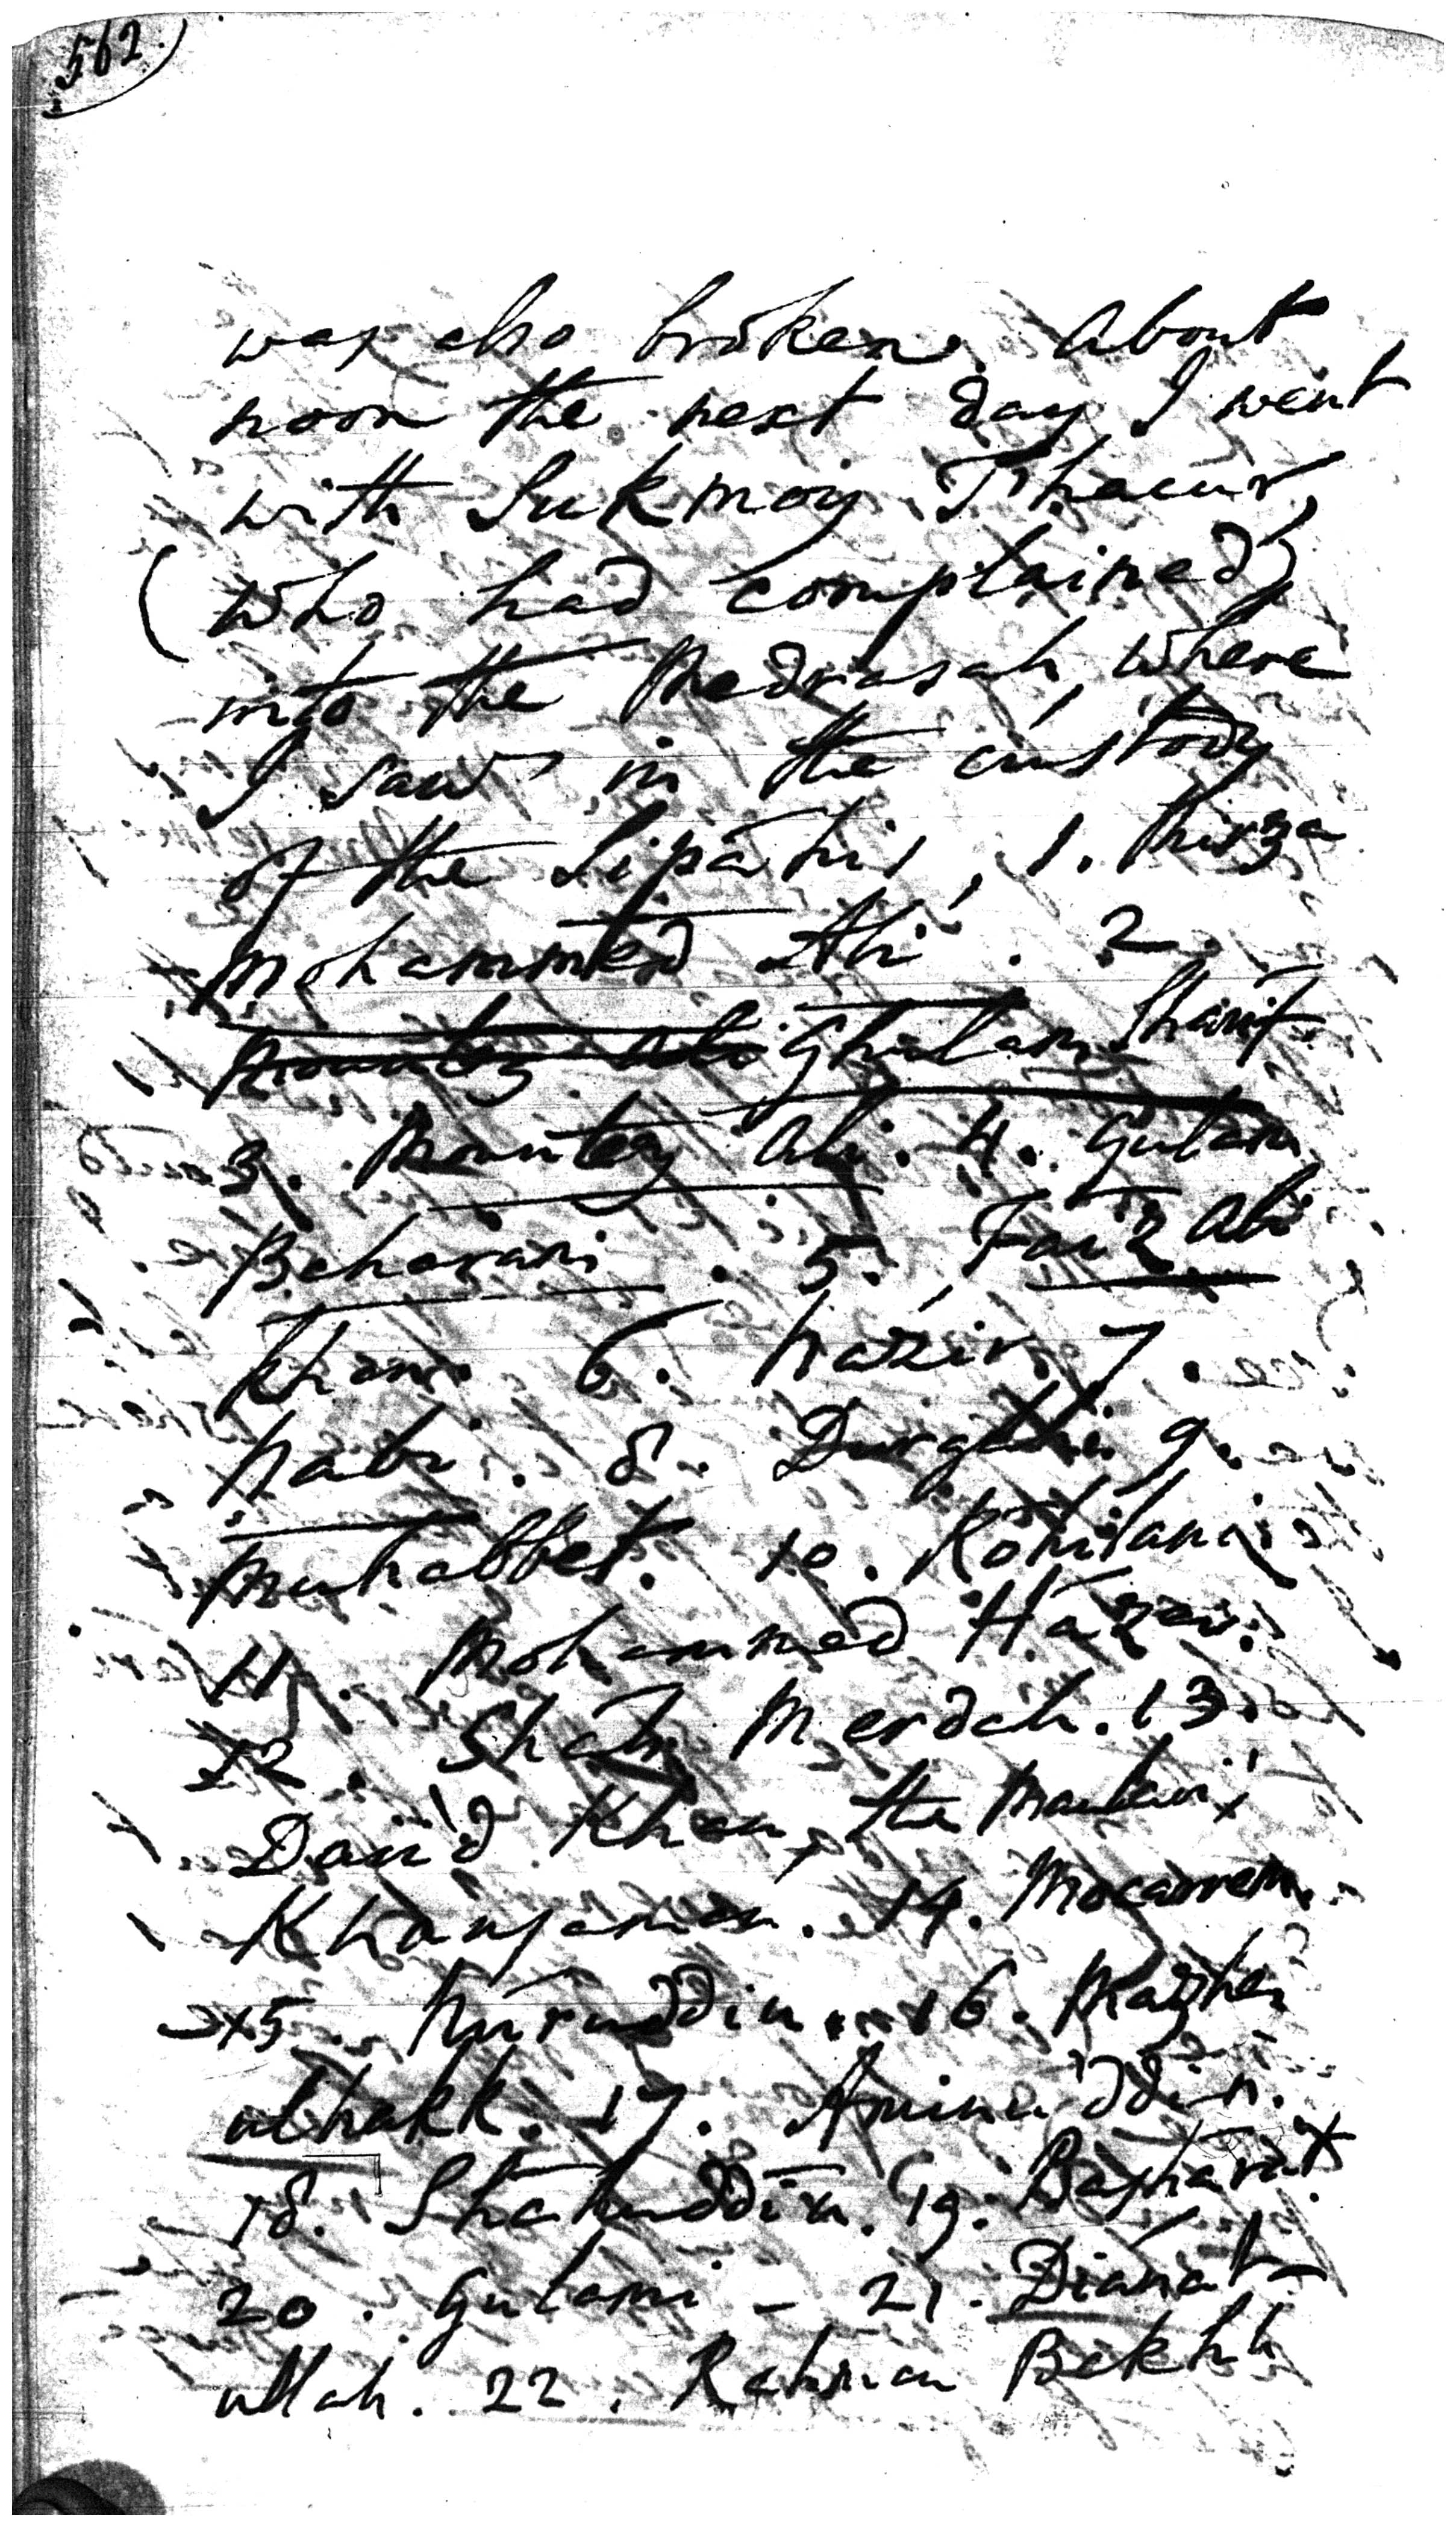 562.
was also broken. About
noon the next day I went
with Sukmoy Thacur,
(who had complained)
into the Medrasah, where
I saw in the custody
of the Sipáhis, 1. Mirza
Mohammed Ali. 2.
Mountez Ali Ghulam Sharif.
3. Mountez Ali. 4. Gulam
5. Faiz Ali
Khan. 6. Nazir. 7.
Nabi. 8. 9.
Muhabbet. 10.
11. Mohammed
12. Shah Merdah. 13.
Daúd Khan, the Maulavi's
Khansaman. 14. Mocarrem.
15. Núruddin. 16. Mazher
ulhakk. 17. Aminu'ddin.
18. 19. Basharat
20. Gulami - 21. Díánat
ullah. 22. Rahman Bakhsh